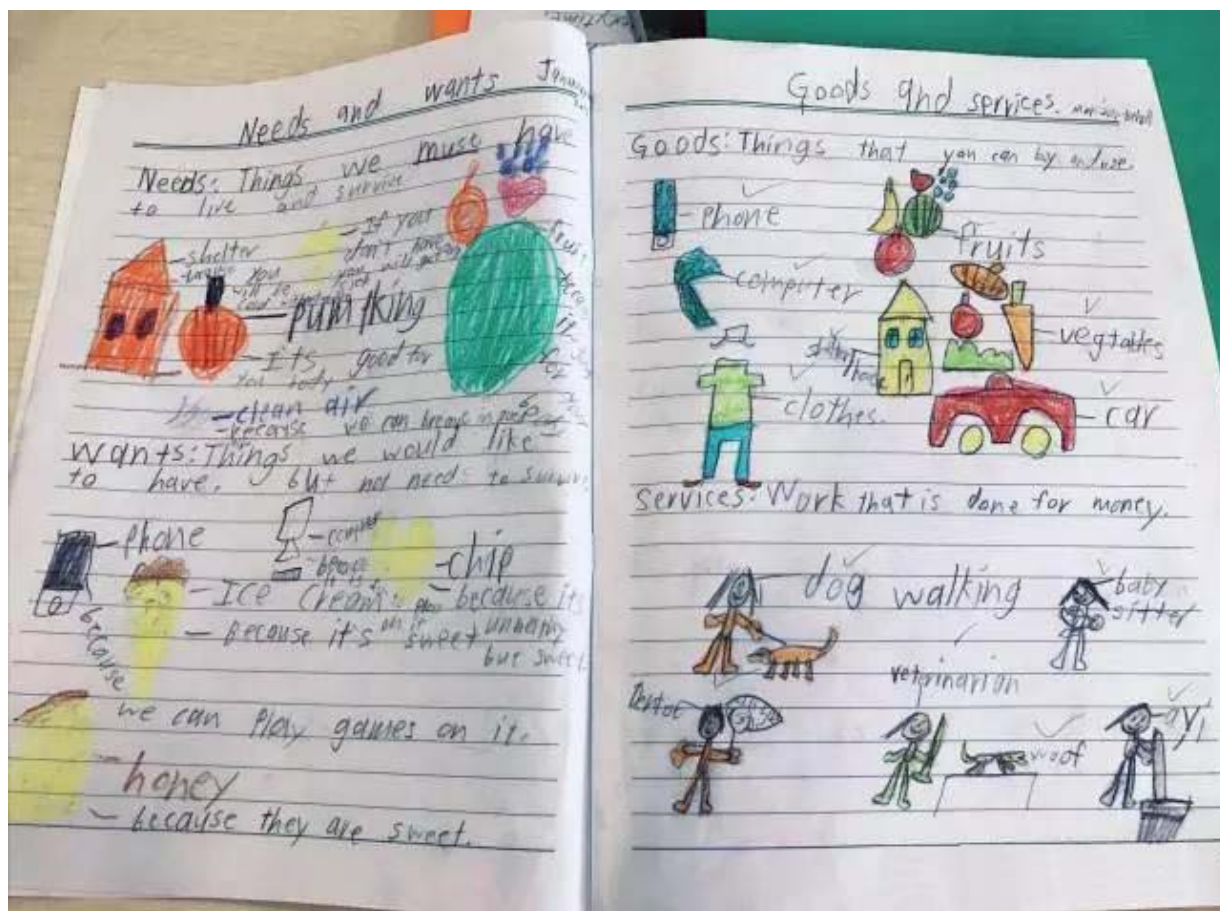 Needs and wants
Needs: Things we must have
to live and survive
shelter
If you
don't have
you will get
fruit
pumpking
Its good for
you body
clean air
because we can
Wants: Things we would like
to have. but not need: to
phone
chip
Ice cream
because its
because it's sweet
unhealthy
but sweet
because
we can play games on it.
honey
because they are sweet.
Goods and services.
Goods: Things that you can by and use.
phone
fruits
computer
vegtables
clothes.
car
Services: Work that is done for money.
dog walking
baby
sitter
veterinarian
woof
ayi